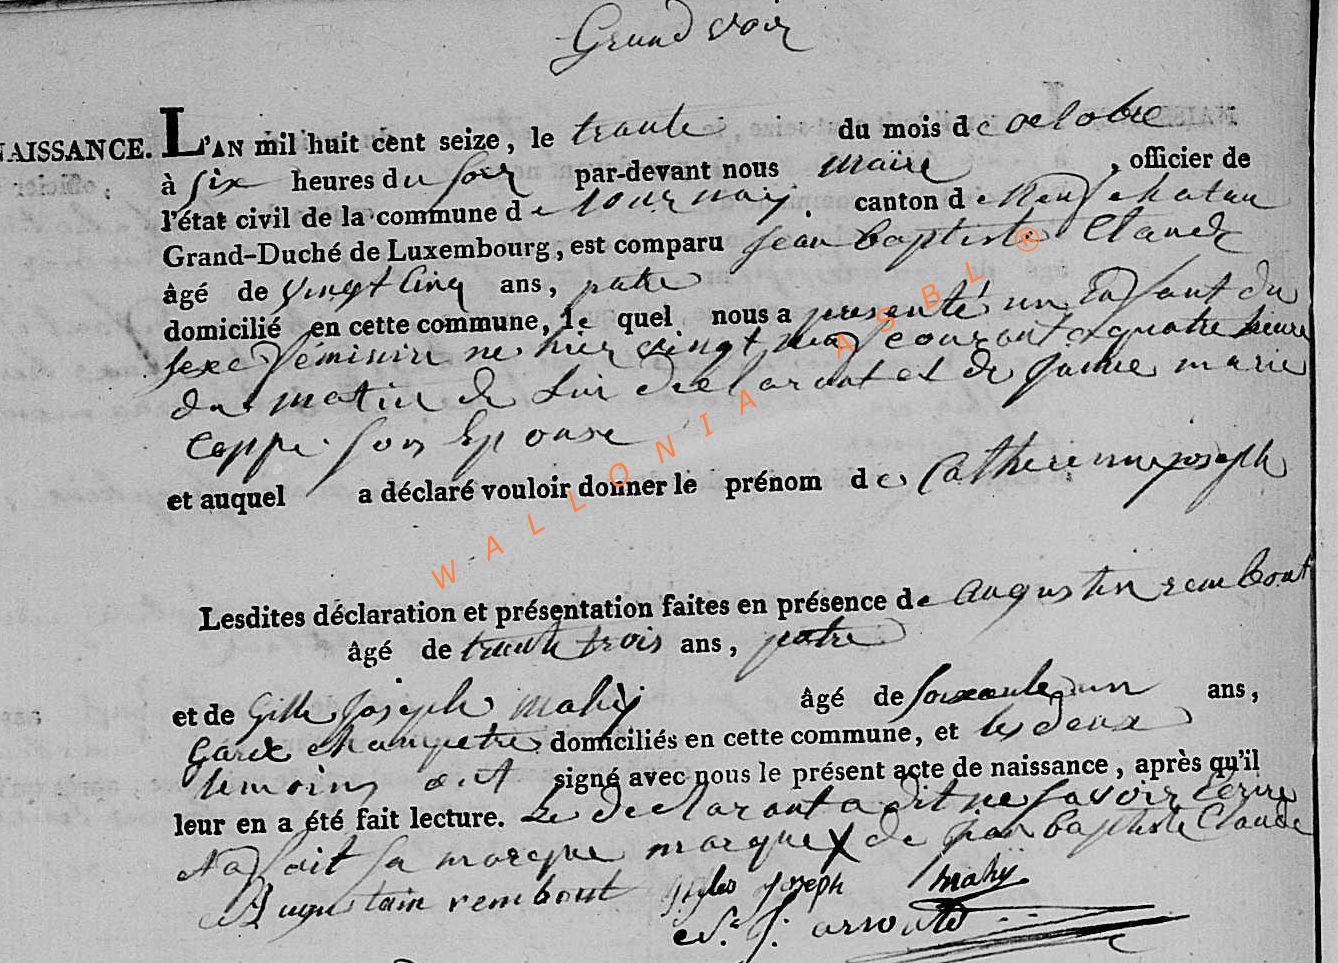 Grandvoir
NAISSANCE. L'AN mil huit cent seize, le trante du mois de octobre
à six heures du soir par-devant nous maïre, officier de
l'état civil de la commune de tournay, canton de Neufchatau
Grand-Duché de Luxembourg, est comparu jean baptiste Claude
âgé de vingt cinq ans, patre
domicilié en cette commune, le quel nous a presenté un Enfant du
sexe féminin ne hier vingt neuf courant a quatre heure
du matin de Lui declarant et de jeanne marie
Coppe son Epouse
et auquel a déclaré vouloir donner le prénom de Catherinne joseph
Lesdites déclaration et présentation faites en présence de augustin rembout
âgé de trante trois ans, patre
et de Gille joseph mahy âgé de soixante un ans,
Garde champetre domiciliés en cette commune, et les deux
temoins ont signé avec nous le présent acte de naissance, après qu'il
leur en a été fait lecture. Le declarant a dit ne savoir Ecrire
et a fait sa marque marque X de jean baptiste Claude
Augustain rembout gigles joseph mahy
J. arrould
WALLONIA ASBL ®